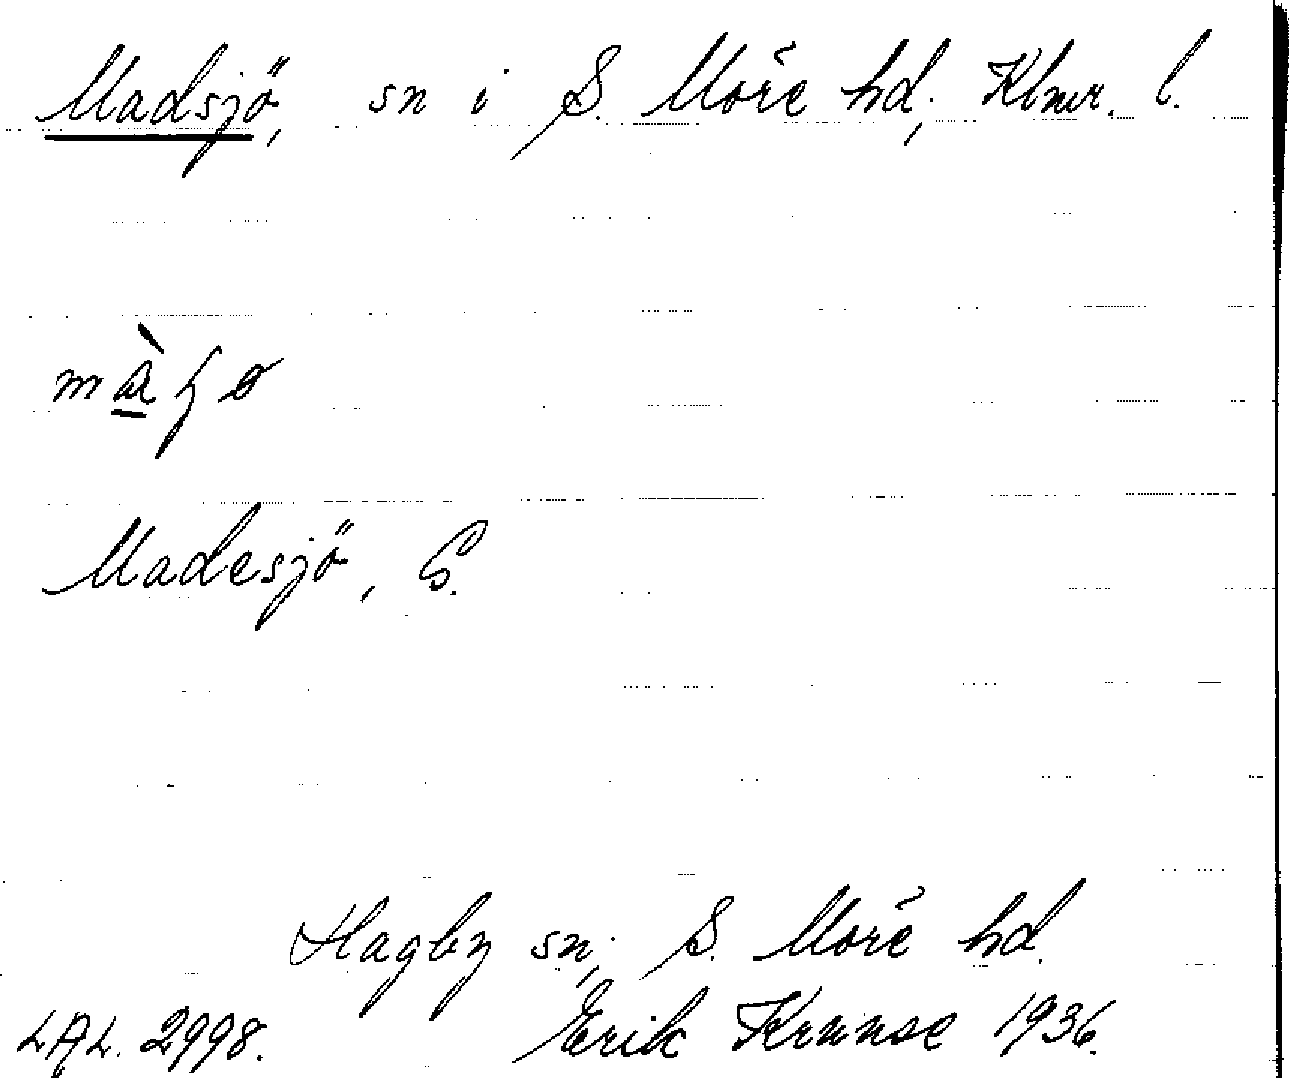 Madsjö, sn i S. Möre hd, Klmr. l.
Madesjö, S.
Hagby sn, S. Möre hd.
LAL. 2998. Erik Krause 1936.